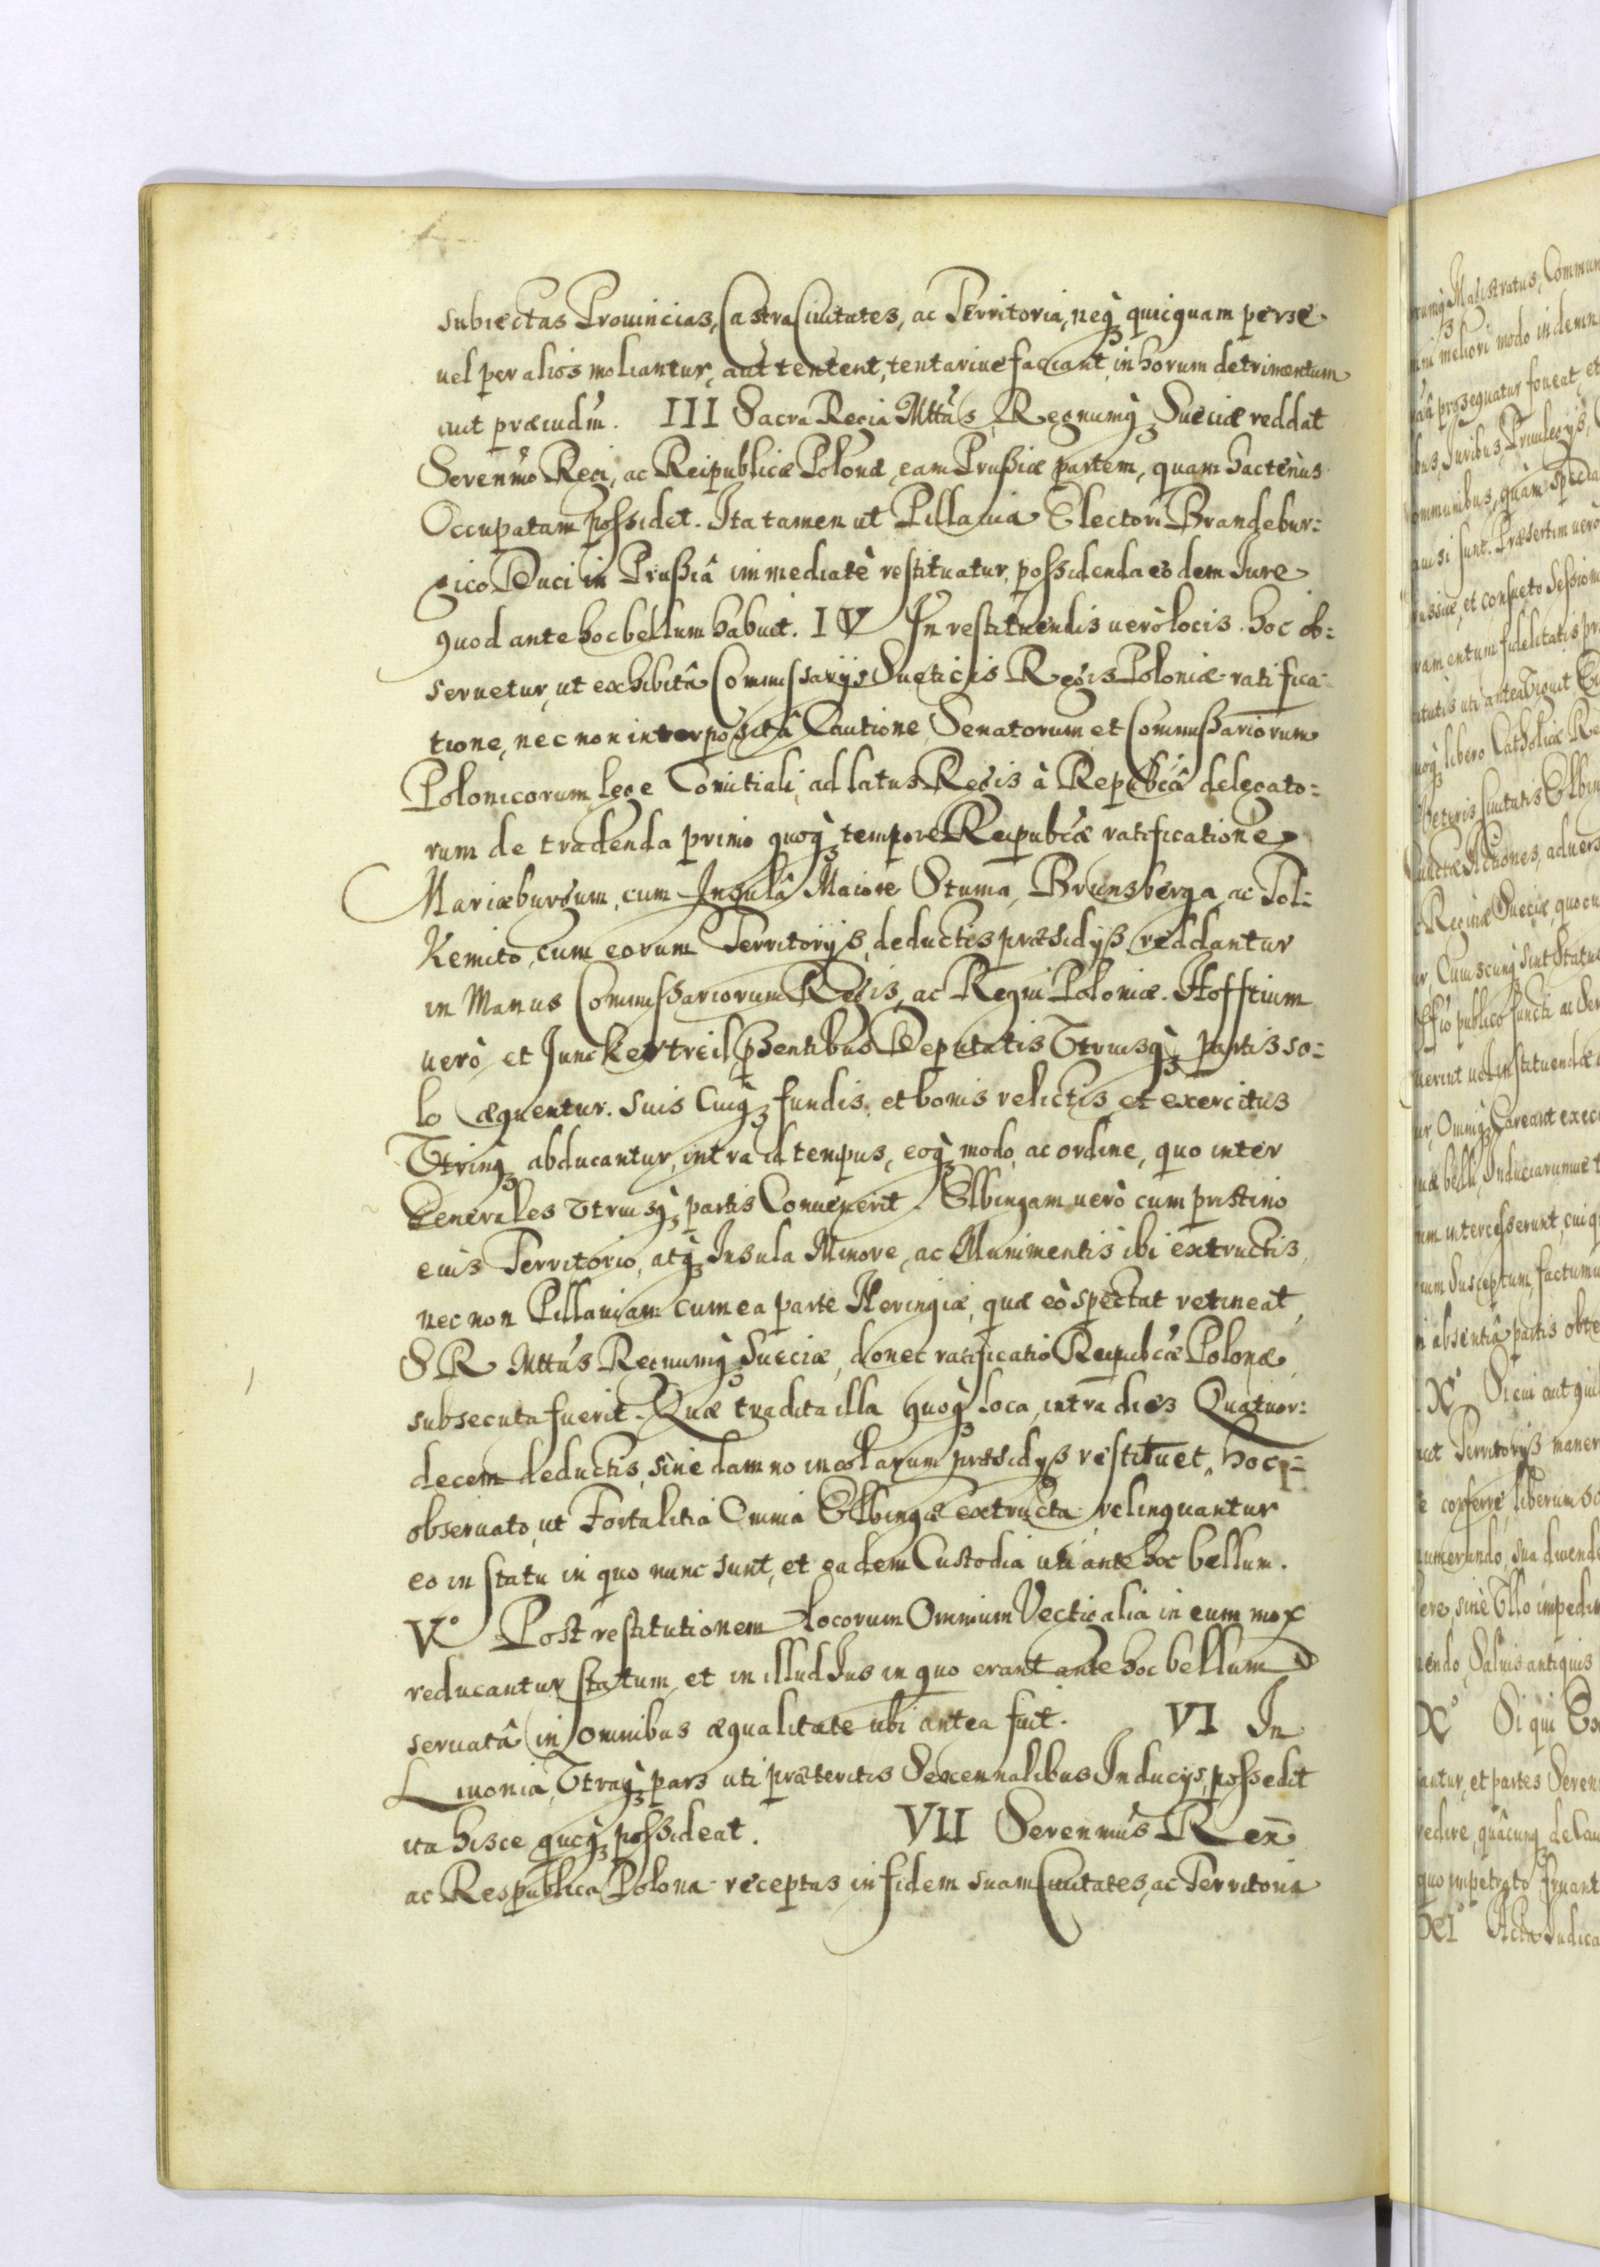 subiectas Prouincias, Castra Ciuitates, ac Territoria, neqꝫ quicquam per se
uel per alios moliantur, aut tentent, tentariue faciant in horum detrimentum
aut præiudm̄. III Sacra Regia Mttas Regnumqꝫ Sueciæ reddat
Seren͠mo Regi, ac Reipublicæ Polonæ, eam Prußiæ partem, quam hactenùs
Occupatam possidet. Ita tamen ut Pillauia Electori Brandebur:
gico Duci in Prußiâ immediatè restituatur, possidenda eodem Iure
quod ante hoc bellum habuit. IV In restituendis uerò locis hoc ob:
seruetur, ut exhibitâ Commissarijs Sueticis Regis Poloniæ ratifica-
tione, nec non interpositâ Cautione Senatorum, et Commißariorum
Polonicorum lege Comitiali, ad latus Regis à Repubcâ delegato:
rum de tradenda primo quoqꝫ tempore Reipubcæ ratificatione
Mariæburgum, cum Insulâ Maiore Stuma, Brunsberga, ac Tol:
Kemito, cum eorum Territorijs, deductis præsidijs reddantur
in Manus Commissariorum Regis, ac Regni Poloniæ. Hofftium
uerò et Junckertreil pn̄sentibus Deputatis Utriusqꝫ partis so:
lo æquentur. Suis Cuiqꝫ fundis, et bonis relictis et exercitus
Utrinqꝫ abducantur, intra id tempus, eoqꝫ modo, ac ordine, quo inter
Generales Utriusqꝫ partis Conuenerit. Elbingam uerò cum pristino
eius Territorio, atqꝫ Insula Minore, ac Munimentis ibi extructis,
nec non Pillauiam cum ea parte Neringiæ, quæ eò spectat retineat,
S R Mttas Regnumqꝫ Sueciæ, donec ratificatio Reipubcæ Polonæ
subsecuta fuerit. Quæ tradita illa quoqꝫ loca, intra dies Quatuor:
decem deductis, sine damno incolarum præsidijs restituet, hoc
obseruato, ut Fortalitia Omnia Elbingæ extructa relinquantur
eo in statu in quo nunc sunt, et eadem Custodia uti ante hoc bellum.
V° Post restitutionem locorum Omnium Vectigalia in eum mox
reducantur statum, et in illud Ius in quo erant ante hoc bellum
seruatâ in omnibus æqualitate ubi antea fuit. VI In
Liuonia, Utraqꝫ pars uti præteritis Sexennalibus Inducijs, possedit
ita hisce quoqꝫ possideat. VII Seren͠mus Rex
ac Respublica Polona receptas in fidem suam Ciuitates, ac Territoria